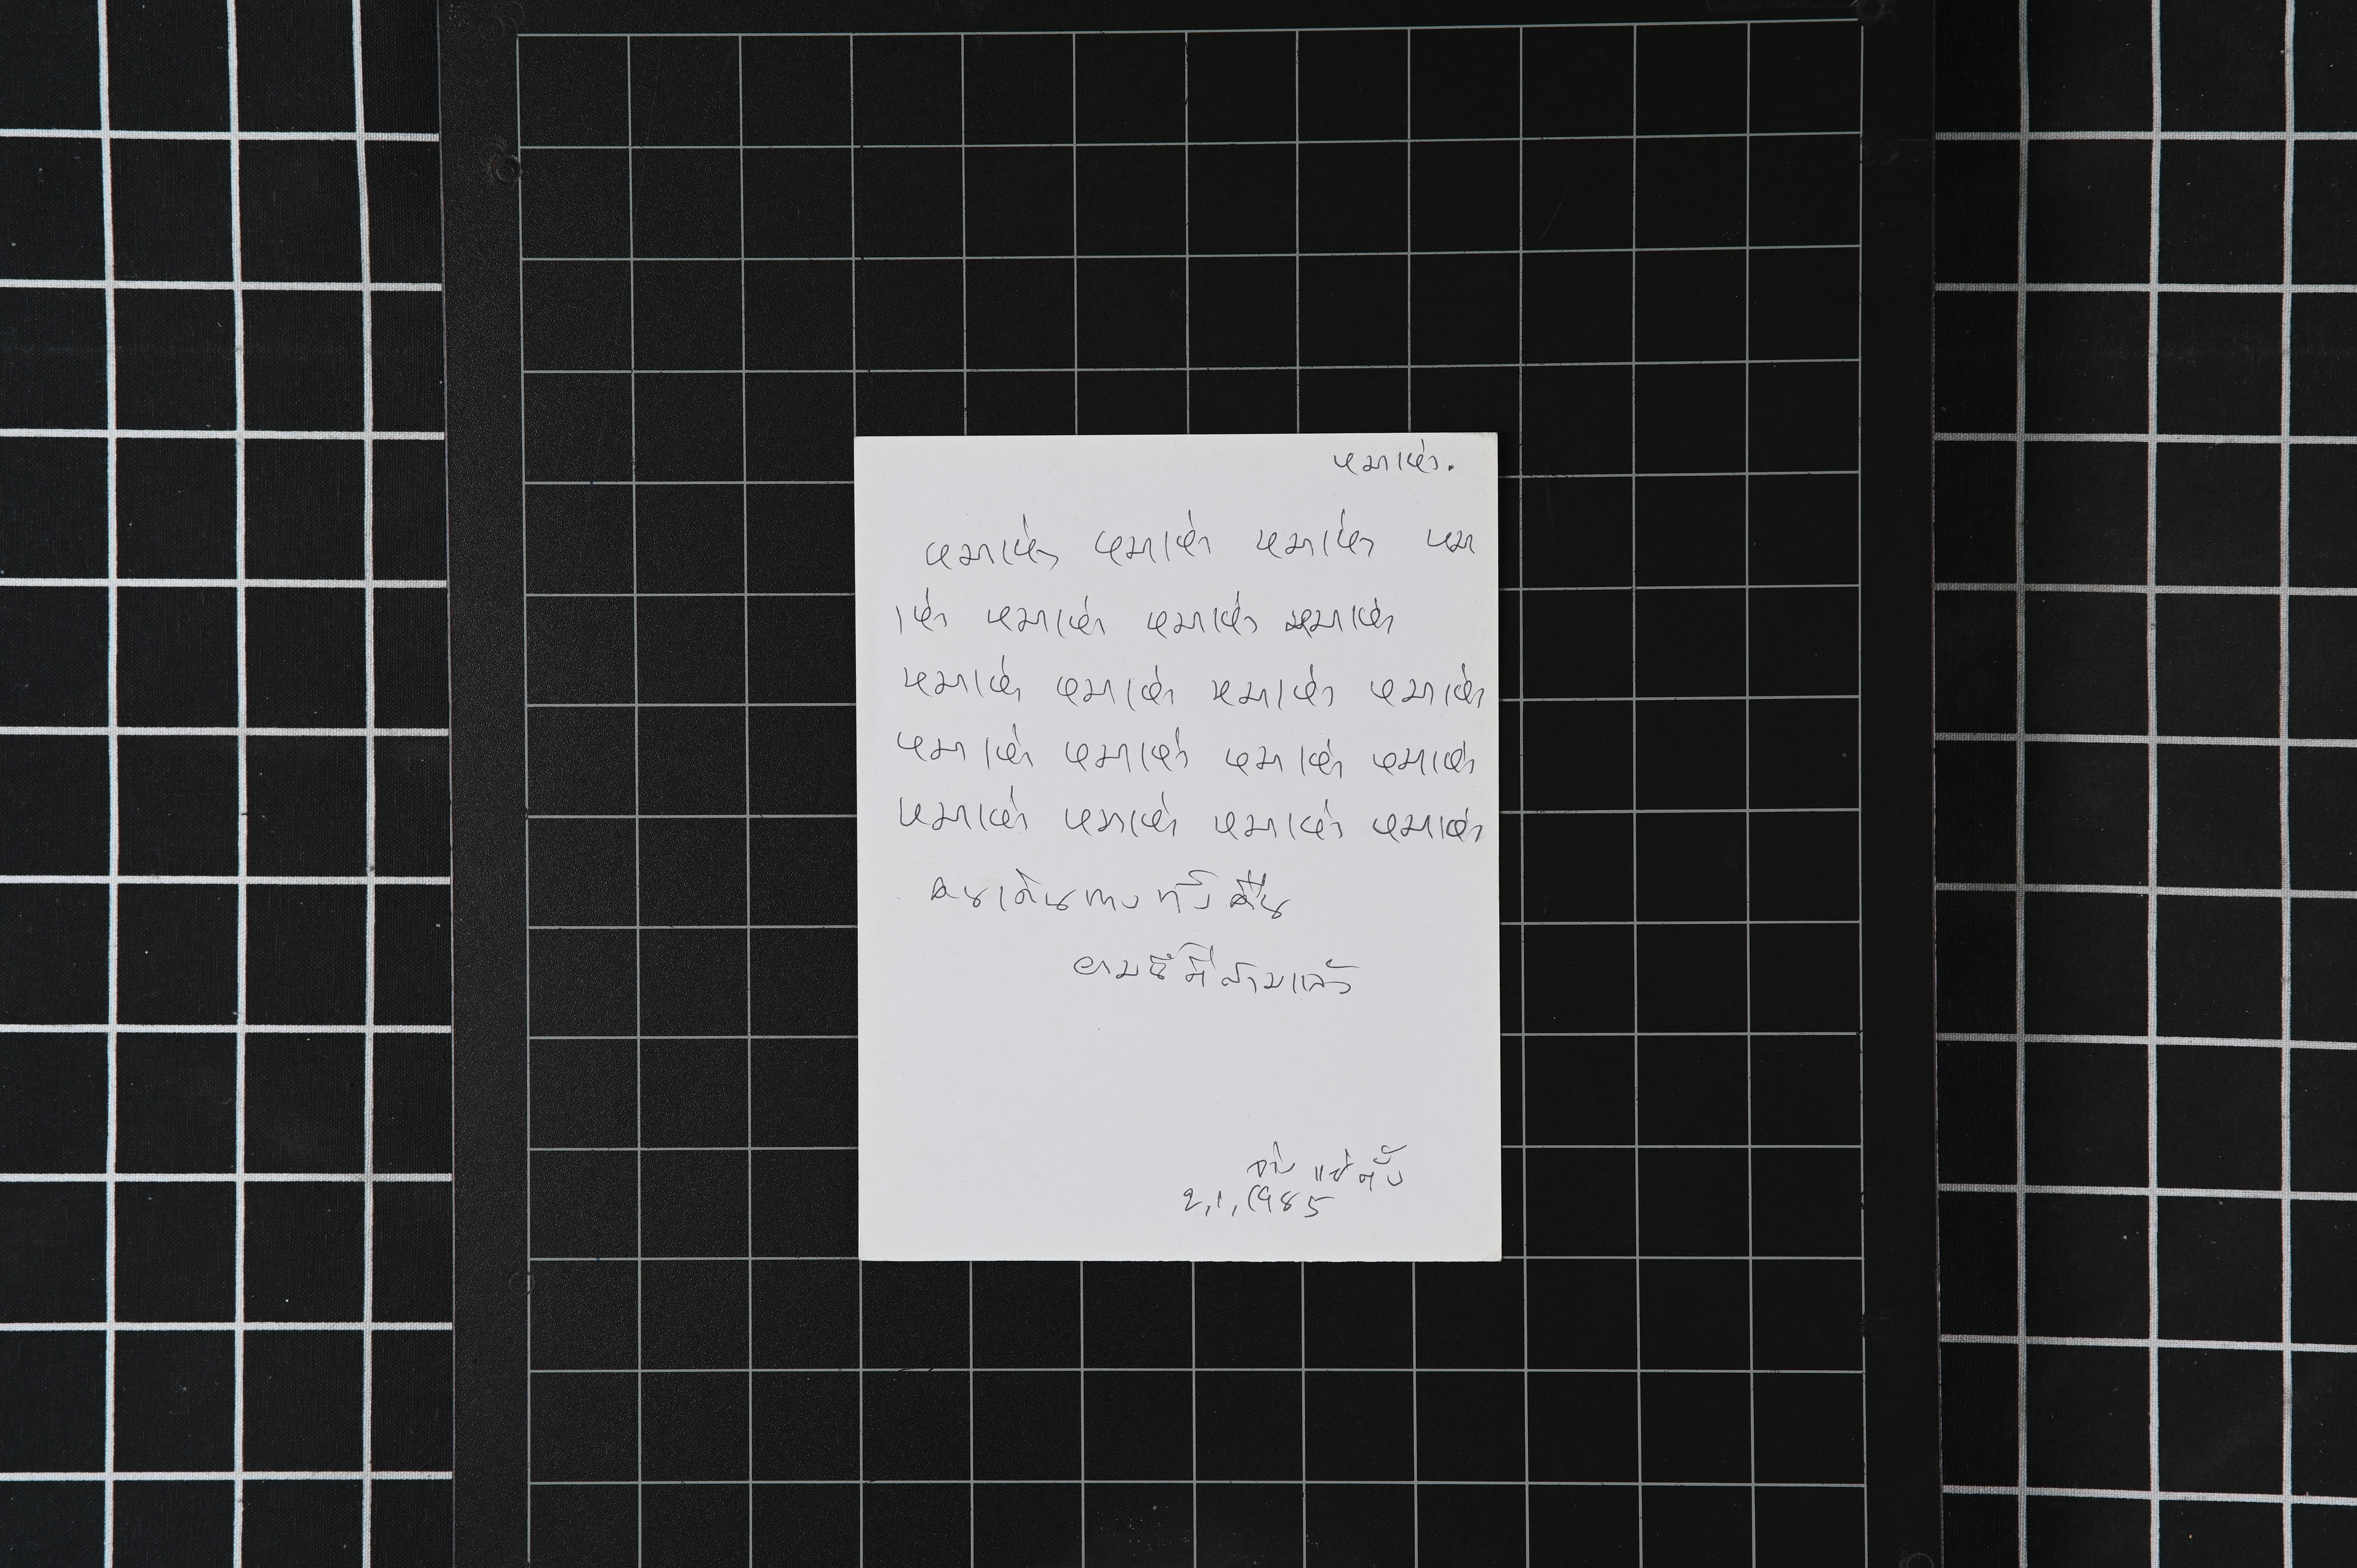 หมาเห่า.
หมาเห่า หมาเห่า หมาเห่า หมา
เห่า หมาเห่า หมาเห่า หมาเห่า
หมาเห่า หมาเห่า หมาเห่า หมาเห่า
หมาเห่า หมาเห่า หมาเห่า หมาเห่า
หมาเห่า หมาเห่า หมาเห่า หมาเห่า
คนเดินทางทั้งคืน
ยามนี้ตีสามแล้ว
จ่าง แซ่ตั้ง
2,1,1985